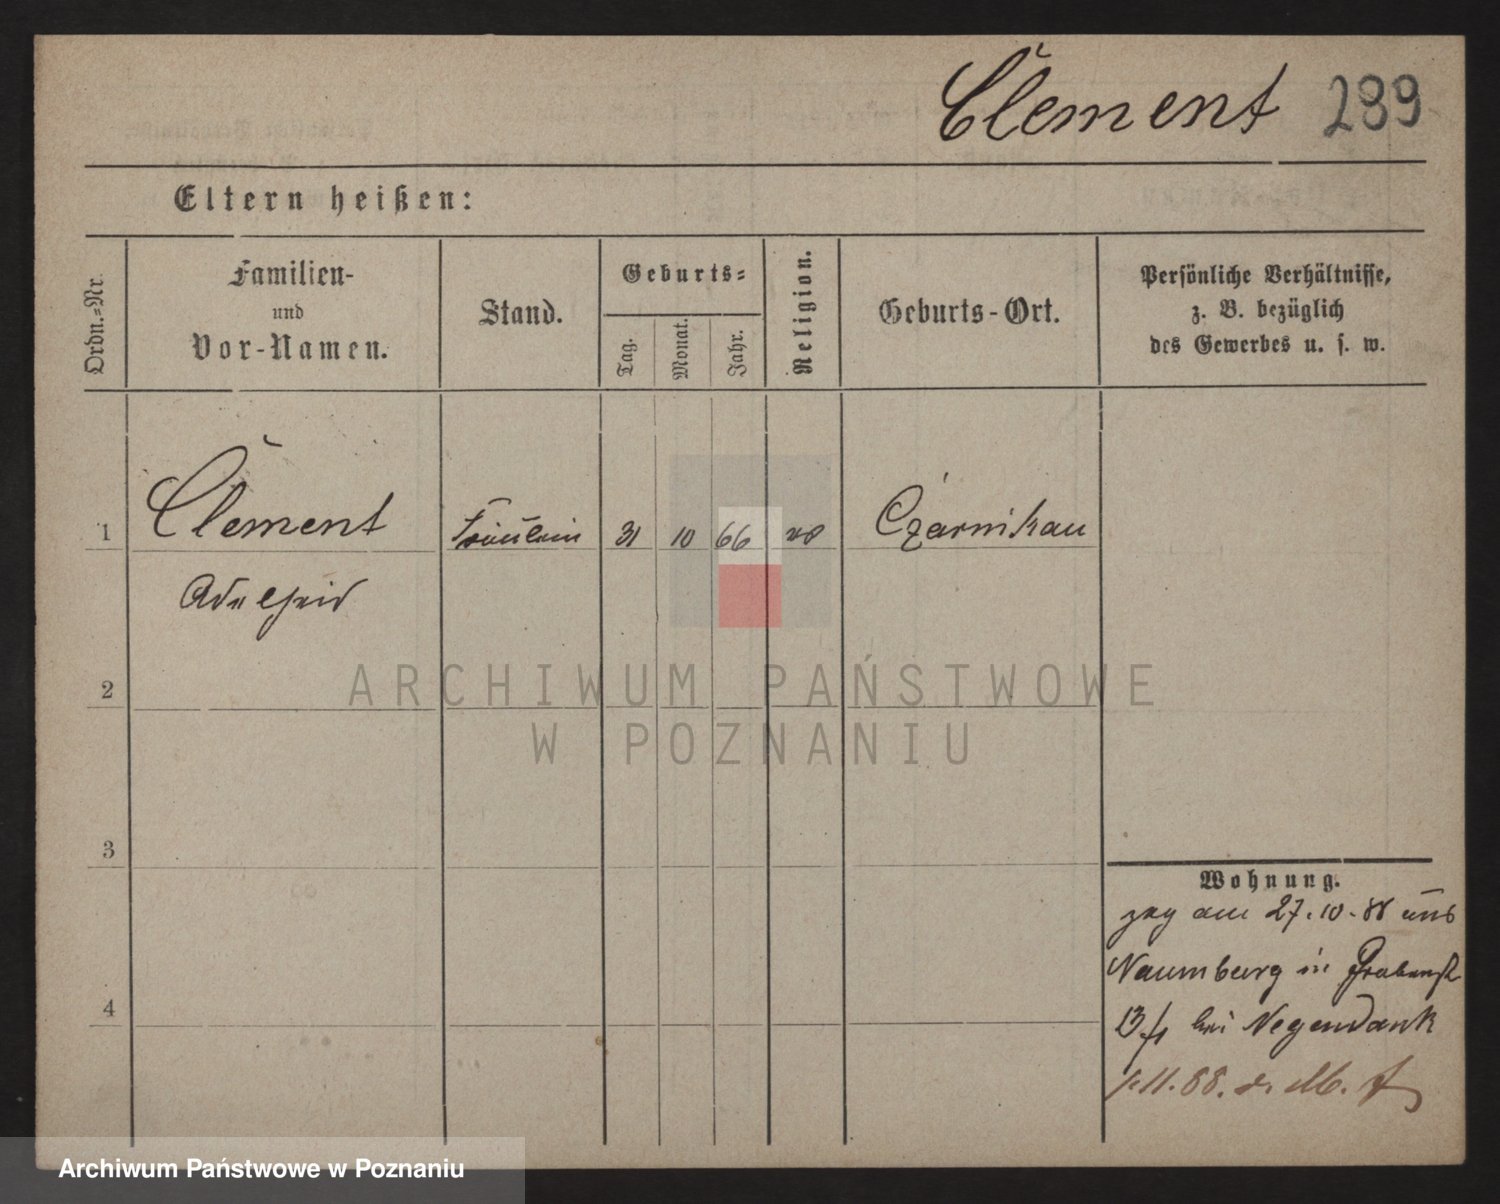 Clement 289
Eltern heißen:
Ordn.=Nr.
Familien-
und
Vor-Namen.
Stand.
Geburts=
Tag.
Monat.
Jahr.
Religion.
Geburts-Ort.
Persönliche Verhältnisse,
z. B. bezüglich
des Gewerbes u. s. w.
1 Clement Fräulein 31 10 66 Czarnikau
Adelheid
2
3
4
Wohnung.
zog am 27.10.88 aus
Naumburg in Grabenst
13 bei Negendank
1.11.88.
ARCHIWUM PAŃSTWOWE
W POZNANIU
Archiwum Państwowe w Poznaniu